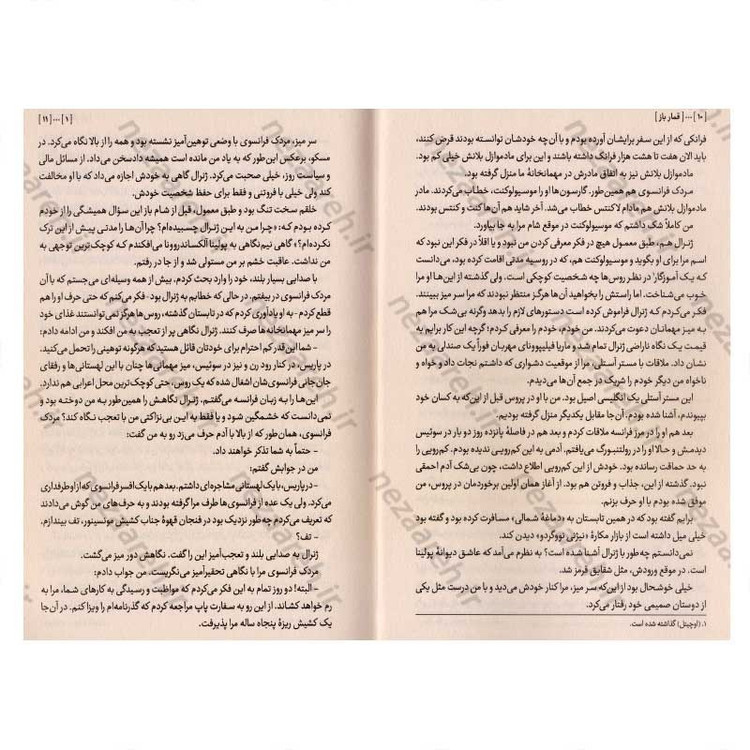 [ ۱۰ ] ... [ قمار باز ]
فرانکی که از این سفر برایشان آورده بودم و با آن چه خودشان توانسته بودند قرض کنند،
باید الان هفت تا هشت هزار فرانگ داشته باشند و این برای مادموازل بلانش خیلی کم بود.
مادموازل بلانش نیز به اتفاق مادرش در مهمانخانهٔ ما منزل گرفته بود.
مردک فرانسوی هم همین‌طور. گارسون‌ها او را موسیولوکنت، خطاب می‌کردند. مادر
مادموازل بلانش هم مادام لاکنتس خطاب می‌شد. آخر شاید هم آن‌ها کنت و کنتس بودند.
من کاملاً شک داشتم که موسیولوکنت در موقع شام مرا به جا بیاورد.
ژنرال هم، طبق معمول هیچ در فکر معرفی کردن من نبود و یا اقلاً در فکر این نبود که
اسم مرا برای او بگوید و موسیولوکنت هم، که در روسیه مدتی اقامت کرده بود، می‌دانست
که یک آموزگار' در نظر روس‌ها چه شخصیت کوچکی است. ولی گذشته از این‌ها او مرا
خوب می‌شناخت. اما راستش را بخواهید آن‌ها هرگز منتظر نبودند که مرا سر میز ببینند.
فکر می‌کردم که ژنرال فراموش کرده است دستورهای لازم را بدهد وگرنه بی‌شک مرا هم
به میز مهمانان دعوت می‌کردند. من خودم، خودم را معرفی کردم؛ گرچه این کار برایم به
قیمت یک نگاه ناراضی ژنرال تمام شد و ماریا فیلیپوونای مهربان فوراً یک صندلی به من
نشان داد. ملاقات با مستر آستلی، مرا از موقعیت دشواری که داشتم نجات داد و خواه و
ناخواه من دیگر خودم را شریک در جمع آن‌ها می‌دیدم.
این مستر آستلی یک انگلیس اصیل بود. من با او در پروس قبل از این‌که به کسان خود
بپیوندم، آشنا شده بودم. آن‌جا مقابل یکدیگر منزل گرفته بودیم.
بعد هم او را در مرز فرانسه ملاقات کردم و بعد هم در فاصلهٔ پانزده روز دو بار در سوئیس
دیدمش و حالا او را در رولتنبورگ می‌یافتم. آدمی به این کم‌رویی ندیده بودم. کم‌رویی را
به حد حماقت رسانده بود. خودش از این کم‌رویی اطلاع داشت، چون بی‌شک آدم احمقی
نبود. گذشته از این، جذاب و فروتن هم بود. از آغاز همان اولین برخوردمان در پروس، من
موفق شده بودم با او حرف بزنم.
برایم گفته بود که در همین تابستان به «دماغهٔ شمالی» مسافرت کرده بود و گفته بود
خیلی میل داشته است از بازار مکارهٔ «نیژنی نووگردو» دیدن کند.
نمی‌دانستم چه‌طور با ژنرال آشنا شده است؟ به نظرم می‌آمد که عاشق دیوانهٔ پولینا
است. در موقع ورودش، مثل شقایق قرمز شد.
خیلی خوشحال بود از این‌که سر میز، مرا کنار خودش می‌دید و با من درست مثل یکی
از دوستان صمیمی خود رفتار می‌کرد.
۱. (اوچیتل) گذاشته شده است.
[ ۱ ] ... [ ۱۱ ]
سر میز، مردک فرانسوی با وضعی توهین‌آمیز نشسته بود و همه را از بالا نگاه می‌کرد. در
مسکو، برعکس این‌طور که به یاد من مانده است همیشه دادسخن می‌داد. از مسائل مالی
و سیاست روز، خیلی صحبت می‌کرد. ژنرال گاهی به خودش اجازه می‌داد که با او مخالفت
کند ولی خیلی با فروتنی و فقط برای حفظ شخصیت خودش.
خلقم سخت تنگ بود و طبق معمول، قبل از شام باز این سؤال همیشگی را از خودم
کرده بودم که: «چرا من به این ژنرال چسبیده‌ام؟ چرا آن‌ها را مدتی پیش از این ترک
نکرده‌ام؟» گاهی نیم‌نگاهی به پولینا آلکساندروونا می‌افکندم که کوچک‌ترین توجهی به
من نداشت. عاقبت خشم بر من مستولی شد و از جا در رفتم.
با صدایی بسیار بلند، خود را وارد بحث کردم. بیش از همه وسیله‌ای می‌جستم که با آن
مردک فرانسوی در بیفتم. در حالی که خطابم به ژنرال بود -فکر می‌کنم که حتی حرف او را هم
قطع کردم- به او یادآوری کردم که در تابستان گذشته، روس‌ها هرگز نمی‌توانستند غذای خود
را سر میز مهمانخانه‌ها صرف کنند. ژنرال نگاهی پر از تعجب به من افکند و من ادامه دادم:
- شما این‌قدر کم احترام برای خودتان قائل هستید که هرگونه توهینی را تحمل می‌کنید.
در پاریس، در کنار رود رن و نیز در سوئیس، میز مهمانی‌ها چنان با این لهستانی‌ها و رفقای
جان‌جانی فرانسوی‌شان اشغال شده که یک روس، حتی کوچک‌ترین محل اعرابی هم ندارد.
این‌ها را به زبان فرانسه می‌گفتم. ژنرال نگاهش را همین‌طور به من دوخته بود و
نمی‌دانست که خشمگین شود و یا فقط به این بی‌نزاکتی من با تعجب نگاه کند؟ مردک
فرانسوی، همان‌طور که از بالا با آدم حرف می‌زد رو به من گفت:
- حتماً به شما تذکر خواهند داد.
من در جوابش گفتم:
- در پاریس، با یک لهستانی مشاجره‌ای داشتم. بعد هم با یک افسر فرانسوی که از او طرفداری
می‌کرد. ولی یک عده از فرانسوی‌ها طرف مرا گرفته بودند و به حرف‌های من گوش می‌دادند
که تعریف می‌کردم چه‌طور نزدیک بود در فنجان قهوهٔ جناب کشیش مونسینور، تف بیندازم.
- تف؟
ژنرال به صدایی بلند و تعجب‌آمیز این را گفت. نگاهش دور میز می‌گشت.
مردک فرانسوی مرا با نگاهی تحقیرآمیز می‌نگریست. من جواب دادم:
- البته! دو روز تمام به این فکر می‌کردم که مواظبت و رسیدگی به کارهای شما، مرا به
رم خواهد کشاند. از این رو به سفارت پاپ مراجعه کردم که گذرنامه‌ام را ویزا کنم. در آن‌جا
یک کشیش ریزهٔ پنجاه ساله مرا پذیرفت.
nezaareh.ir